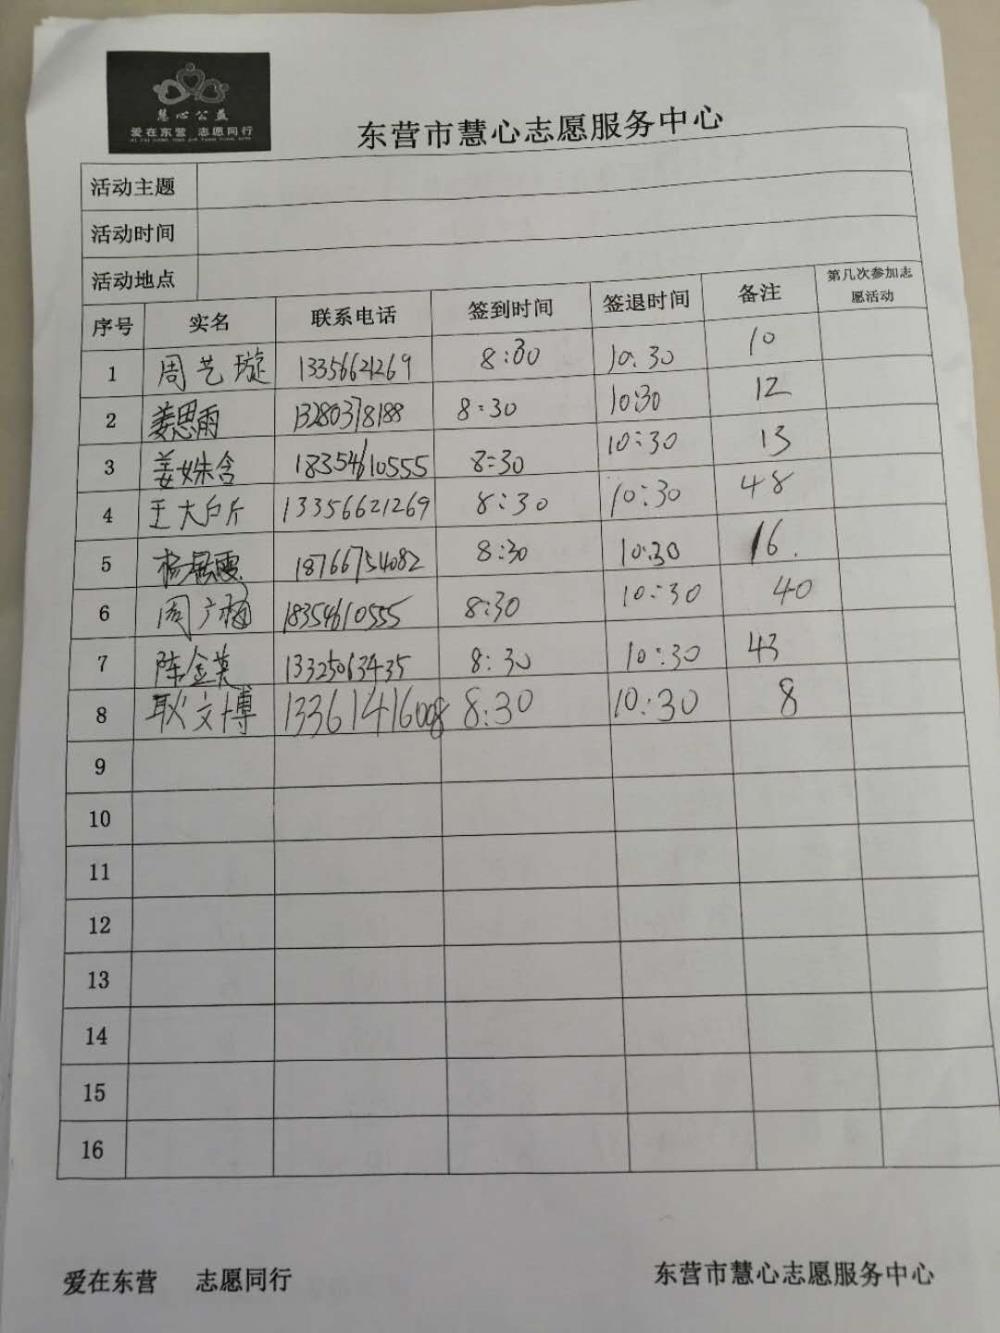 慧心公益
爱在东营 志愿同行
东营市慧心志愿服务中心
活动主题
活动时间
活动地点
序号 实名 联系电话 签到时间 签退时间 备注 第几次参加志愿活动
1 周艺璇 13356621269 8:30 10:30 10
2 姜思雨 13280378188 8:30 10:30 12
3 姜姝含 18354610555 8:30 10:30 13
4 王大户斤 13356621269 8:30 10:30 48
5 杨 18766754082 8:30 10:30 16.
6 周广梅 18354610555 8:30 10:30 40
7 陈金英 13325063435 8:30 10:30 43
8 耿文博 13361416008 8:30 10:30 8
9
10
11
12
13
14
15
16
爱在东营 志愿同行 东营市慧心志愿服务中心